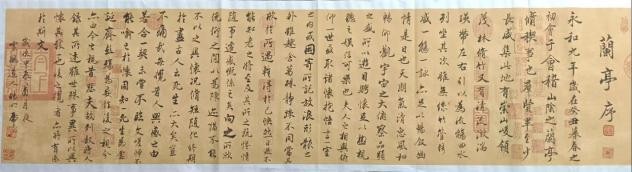 蘭亭序
永和九年歲在癸丑暮春之
初會于會稽山陰之蘭亭
脩禊事也群賢畢至少
長咸集此地有崇山峻領
茂林脩竹又有清流激湍
暎帶左右引以為流觴曲水
列坐其次雖無絲竹管弦之
盛一觴一詠亦足以暢敘幽
情是日也天朗氣清惠風和
暢仰觀宇宙之大俯察品類
之盛所以遊目騁懷足以極視
聽之娛信可樂也夫人之相與俯
仰一世或取諸懷抱悟言一室
之內或因寄所託放浪形骸之
外雖趣舍萬殊靜躁不同當其
欣於所遇暫得於己快然自足不
知老之將至及其所之既惓情
隨事遷感慨係之矣向之所欣
俛仰之間以為陳迹猶不能
不以之興懷況脩短隨化終期
於盡古人云死生亦大矣豈
不痛哉每攬昔人興感之由
若合一契未嘗不臨文嗟悼不
能喻之於懷固知一死生為虛
誕齊彭殤為妄作後之視今
亦由今之視昔悲夫故列敘時人
錄其所述雖世殊事異所以興
懷其致一也後之攬者亦將有感
於斯文